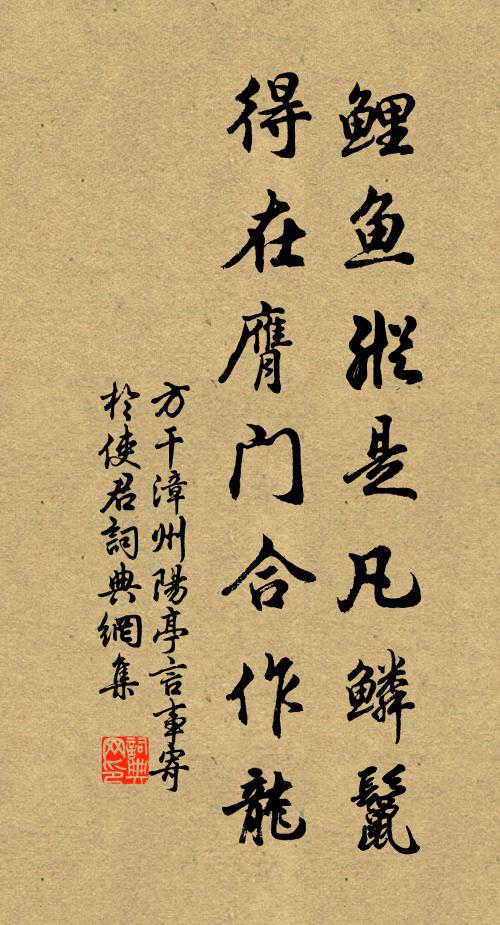 鲤鱼纵是凡鳞鬣
得在膺门合作龙
方干漳州陽亭言事寄
於使君詞典網集
詞典
网印